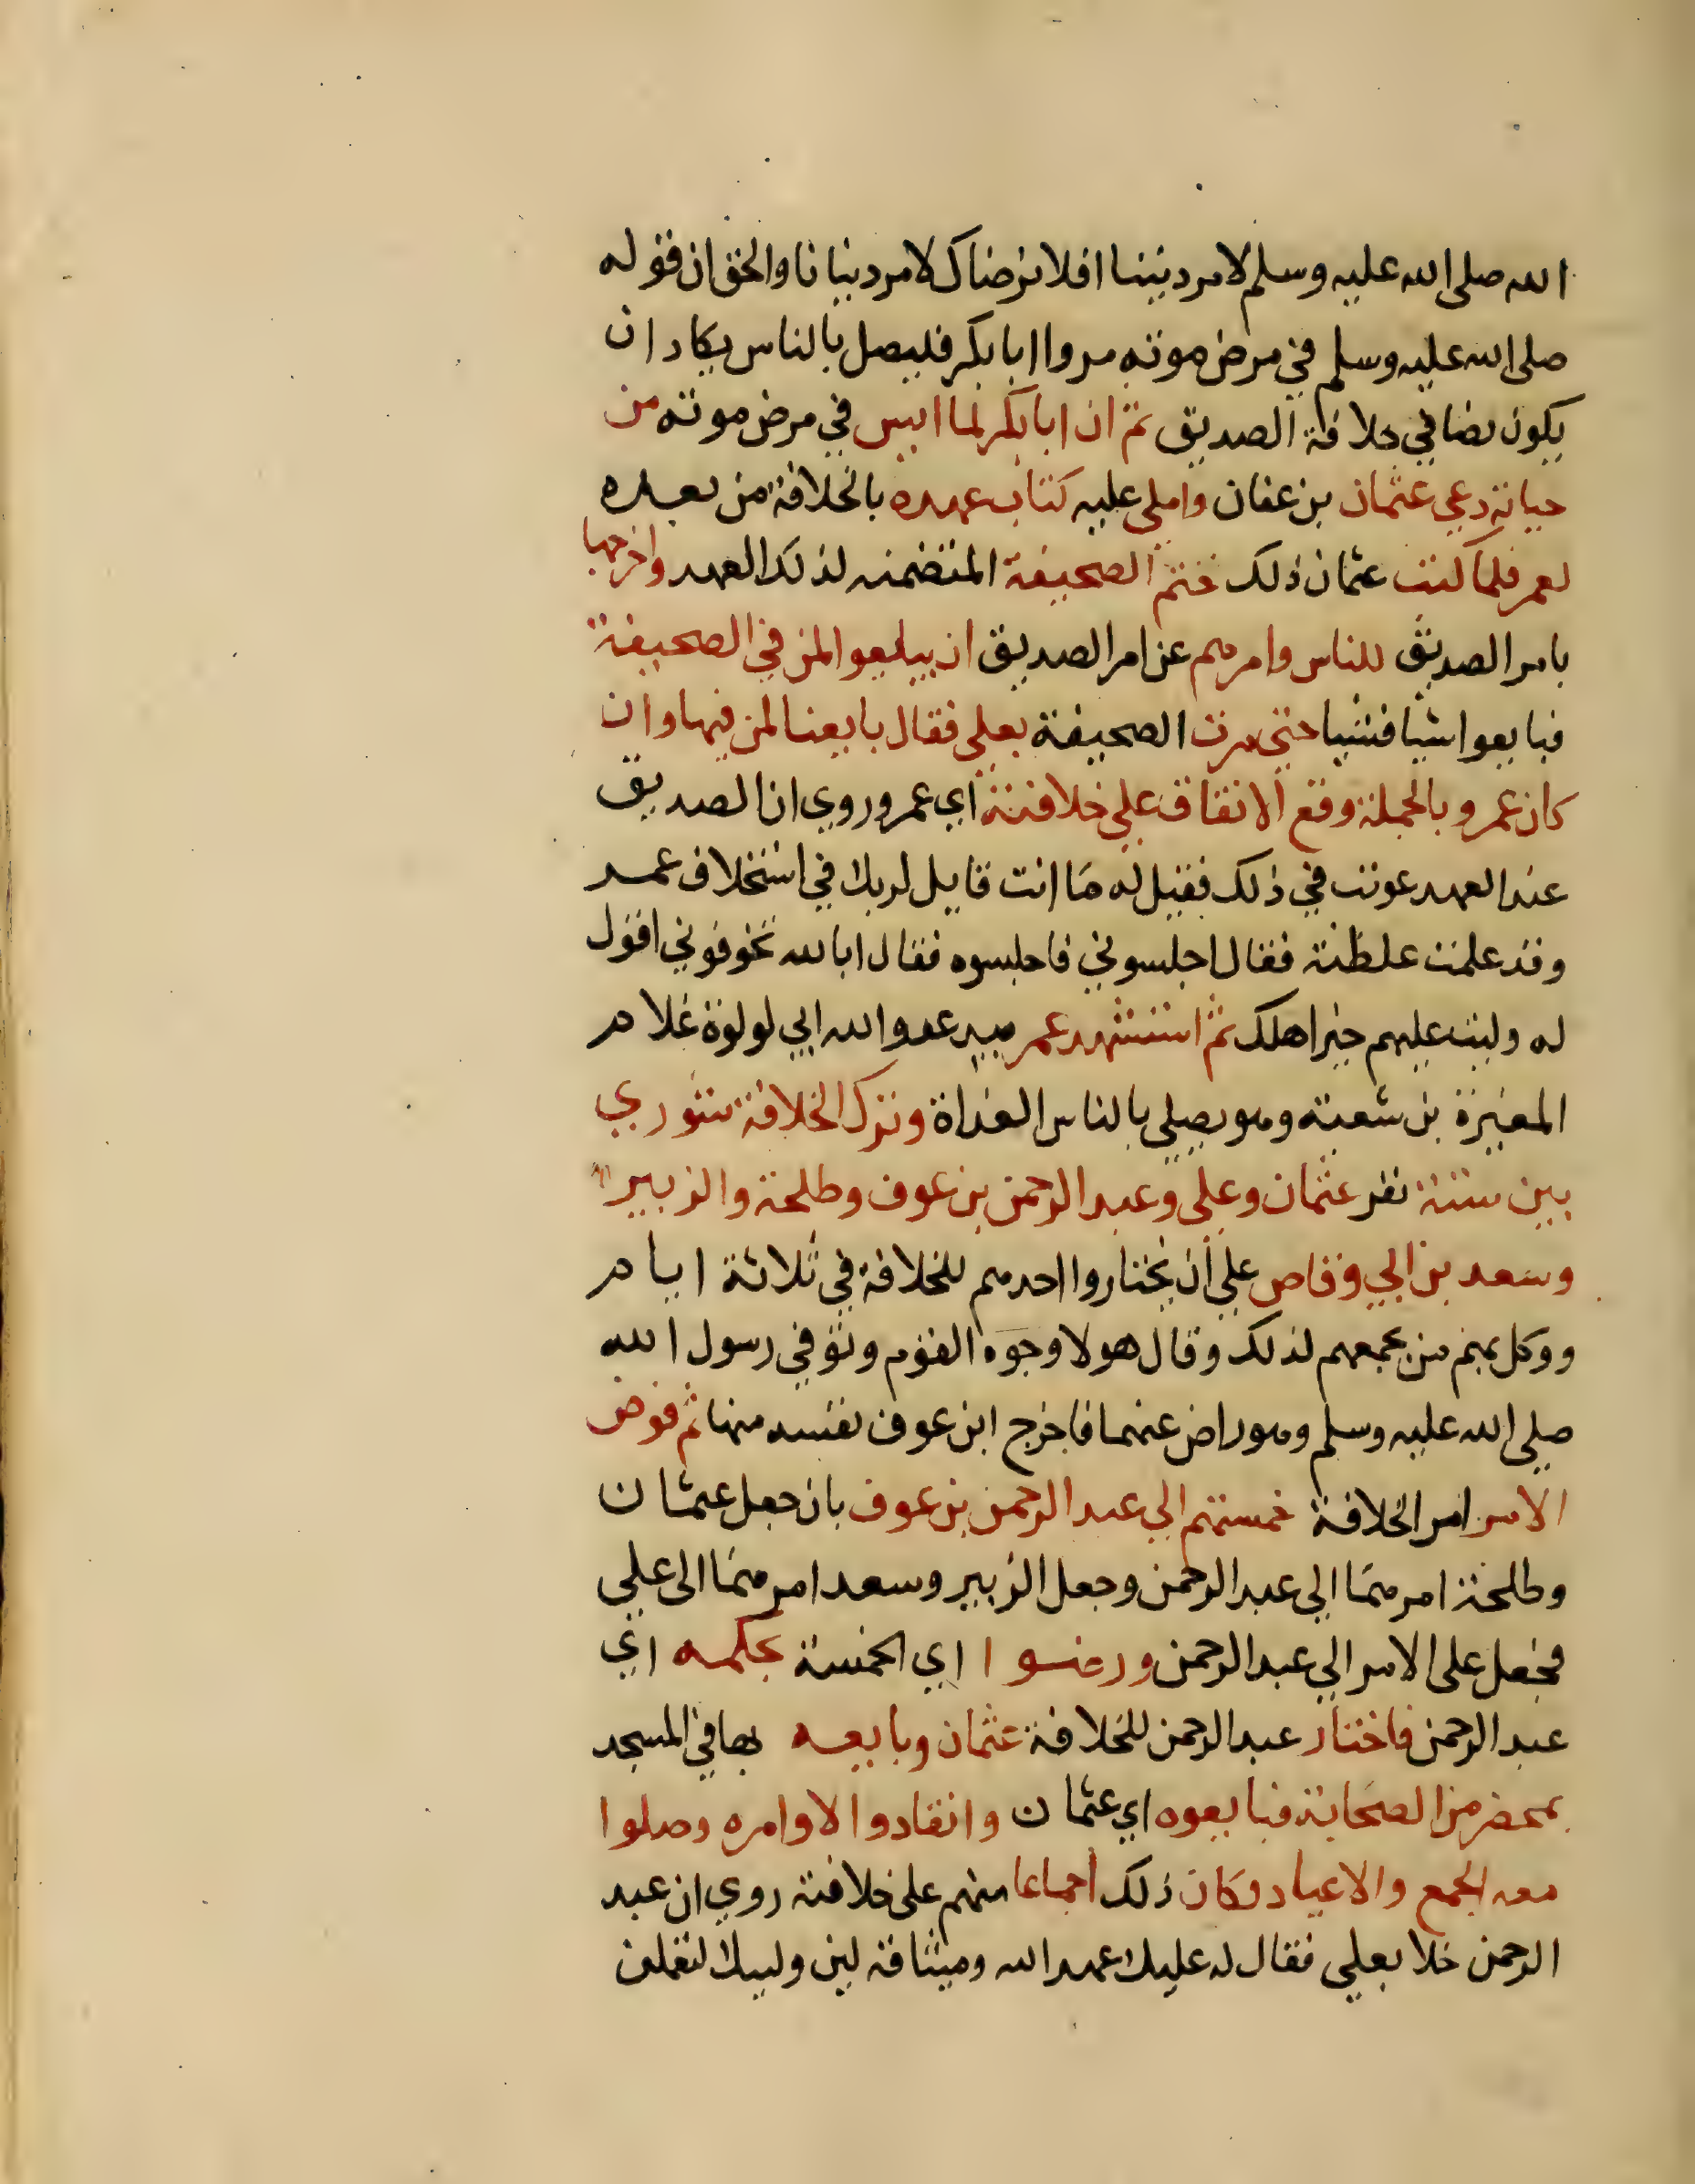 الله صلى الله عليه وسلم لامر ديننا افلا نرضاك لامر دنيانا والحق ان قوله
صلى الله عليه وسلم في مرض موته مروا ابا بكر فليصل بالناس يكاد ان
يكون نصا في خلافة الصديق ثم ان ابا بكر لما ايس في مرض موته من
حياته دعي عثمان بن عفان واملى عليه كتاب عهده بالخلافة من بعده
لعمر فلما كتب عثمان ذلك ختم الصحيفة المتضمنه لذلك العهد واخرجها
بامر الصديق للناس وامرهم عن امر الصديق ان يبايعوا لمن في الصحيفة
فبايعوا شيا فشيا حتي مرت الصحيفة بعلي فقال بايعنا لمن فيها وان
كان عمر وبالجملة وقع الاتفاق علي خلافته اي عمر وروي ان الصديق
عند العهد عوتب في ذلك فقيل له ما انت قايل لربك في استخلاف عمر
وقد علمت غلظته فقال اجلسوني فاجلسوه فقال ابالله تخوفوني اقول
له وليت عليهم خير اهلك ثم استشهد عمر بيد عدو الله ابي لولوة غلام
المغيرة بن شعبة وهو يصلي بالناس الغداة وترك الخلافة شوري
بين ستة نفر عثمان وعلي وعبد الرحمن بن عوف وطلحة والزبير
وسعد بن ابي وقاص علي ان يختاروا احدهم للخلافة في ثلاثة ايام
ووكل بهم من يجمعهم لذلك وقال هولا وجوه القوم وتوفي رسول الله
صلى الله عليه وسلم وهو راض عنهم فاخرج ابن عوف نفسه منها ثم فوض
الامر امر الخلافة خمستهم الي عبد الرحمن بن عوف بان جعل عثمان
وطلحة امرهما الي عبد الرحمن وجعل الزبير وسعد امرهما الى علي
فجعل علي الامر الي عبد الرحمن ورضوا اي الخمسة بحكمه اي
عبد الرحمن فاختار عبد الرحمن للخلافة عثمان وبايعه بها في المسجد
بمحضر من الصحابة فبايعوه اي عثمان وانقادوا لاوامره وصلوا
معه الجمع والاعياد وكان ذلك اجماعا منهم على خلافته روي ان عبد
الرحمن خلا بعلي فقال له عليك عهد الله وميثاقه لين وليتك لتعملن